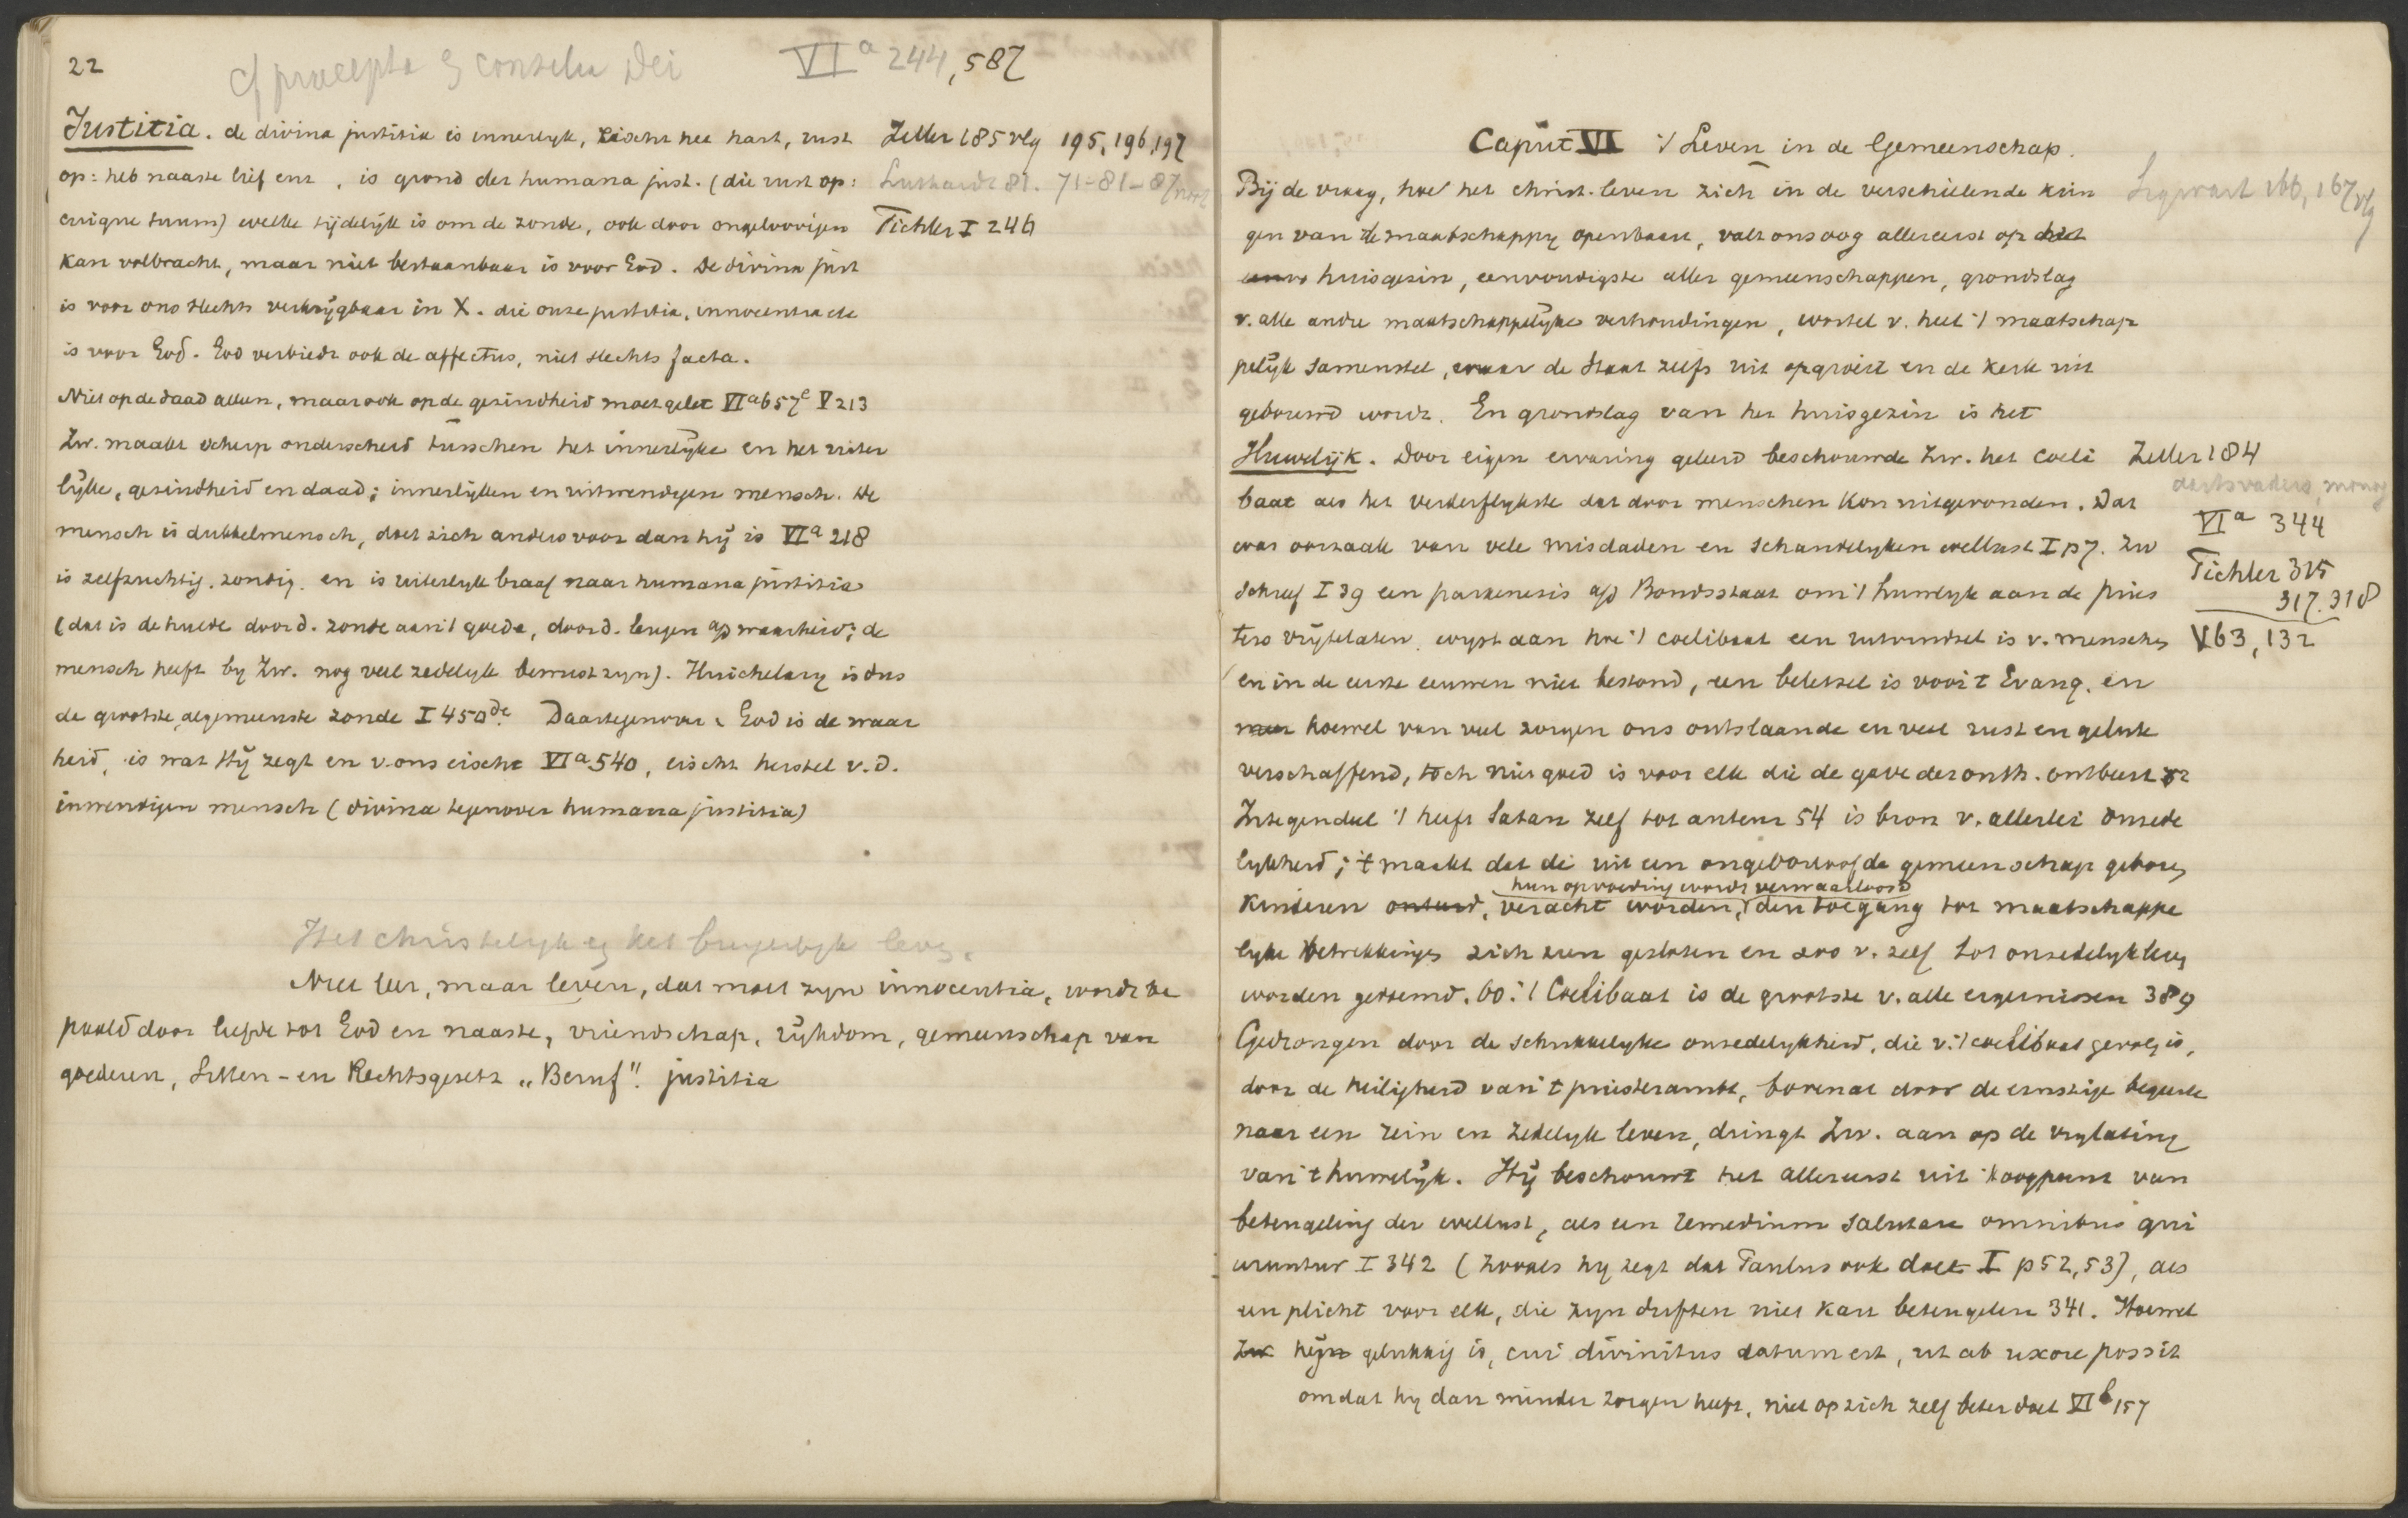 22
cf praecepta & consilia Dei VIa 244, 587
Justitia. de divina justitia is innerlyk, eischt het hart, rust Zeller 185 vlg 195, 196, 197
op: heb naaste lief enz, is grond der humana just. (die rust op: Luthardt 81. 71-81-87
cuique suum) welke tijdelijk is om de zonde, ook door ongeloovigen Tichler I 246
kan volbracht, maar niet bestaanbaar is voor God. De divina just
is voor ons slechts verkrijgbaar in X. die onze justitia, innocentia etc
is voor God. God verbiedt ook de affectus, niet slechts facta.
Niet op de daad alleen, maar ook op de gezindheid moet gelet VIa 657e V 213
Zw. maakt scherp onderscheid tusschen het innerlyke en het uiter
lijke, gezindheid en daad; innerlijken en uitwendigen mensch. De
mensch is dubbelmensch, doet zich anders voor dan hij is VIa 218
is zelfzuchtig. zondig. en is uiterlyk braaf naar humana justitia
(dat is de hulde door d. zonde aan 't goede, door d. leugen a/d waarheid; de
mensch heeft by Zw. nog veel zedelyk bewustzyn). Huichelary is dus
de grootste, algemeenste zonde I 450 de. Daartegenover: God is de waar
heid, is wat Hij zegt en v. ons eischt VIa 540, eischt herstel v. d.
inwendigen mensch (divina tegenover humana justitia)
Het christelyk en het burgerlyk leven.
Niet leer, maar leven, dat moet zyn innocentia, wordt be
paald door liefde tot God en naaste, vriendschap, rijkdom, gemeenschap van
goederen, Sitten- en Rechtsgesetz "Beruf". justitia
Caput VI 't Leven in de Gemeenschap.
Bij de vraag, hoe het christ. leven zich in de verschillende krin Sigwart 166, 167 vlg
gen van de maatschappy openbaart, valt ons oog allereerst op het
huisgezin, eenvoudigste aller gemeenschappen, grondslag
v. alle andre maatschappelyke verhoudingen, wortel v. heel 't maatschap
pelijk samenstel, waar de Staat zelfs uit opgroeit en de kerk uit
gebouwd wordt. En grondslag van het huisgezin is het
Huwelijk. Door eigen ervaring geleerd beschouwde Zw. het coeli Zeller 184
baat als het verderflykste dat door menschen kon uitgevonden. Dat VIa 344
was oorzaak van vele misdaden en schandelyken wellust I p7. Zw Tichler 315
schreef I 39 een paraenesis a/d Bondsstaat om 't huwelyk aan de pries 317. 318
ters vrijtelaten. wyst aan hoe 't coelibaat een uitvindsel is v. menschen V 63, 132
en in de eerste eeuwen niet bestond, een beletsel is voor 't Evang. en
hoewel van veel zorgen ons ontslaande en veel rust en geluk
verschaffend, toch niet goed is voor elk die de gave der onth. ontbeert 52
Integendeel 't heeft Satan zelf tot auteur 54 is bron v. allerlei onzede
lykheid; 't maakt dat de uit een ongeoorloofde gemeenschap geboren
hun opvoeding wordt verwaarloosd
kinderen onteerd, veracht worden, den toegang tot maatschappe
lyke betrekkingen zich zien gesloten en zoo v. zelf tot onzedelyk leven
worden gedoemd. 60: 't Coelibaat is de grootste v. alle ergernissen 389
Gedrongen door de schrikkelyke onzedelykheid, die v. 't coelibaat gevolg is,
door de heiligheid van 't priesterambt, bovenal door de ernstige begeerte
naar een rein en zedelyk leven, dringt Zw. aan op de vrylating
van 't huwelijk. Hij beschouwt het allereerst uit 't oogpunt van
beteugeling der wellust, als een remedium salutare omnibus qui
uruntur I 342 (zooals hy zegt dat Paulus ook doet I p 52, 53), als
een plicht voor elk, die zyn driften niet kan beteugelen 341. Hoewel
hij gelukkig is, cui divinitus datum est, ut ab uxore possit
omdat hy dan minder zorgen heeft, niet op zich zelf beter doet VIb 157